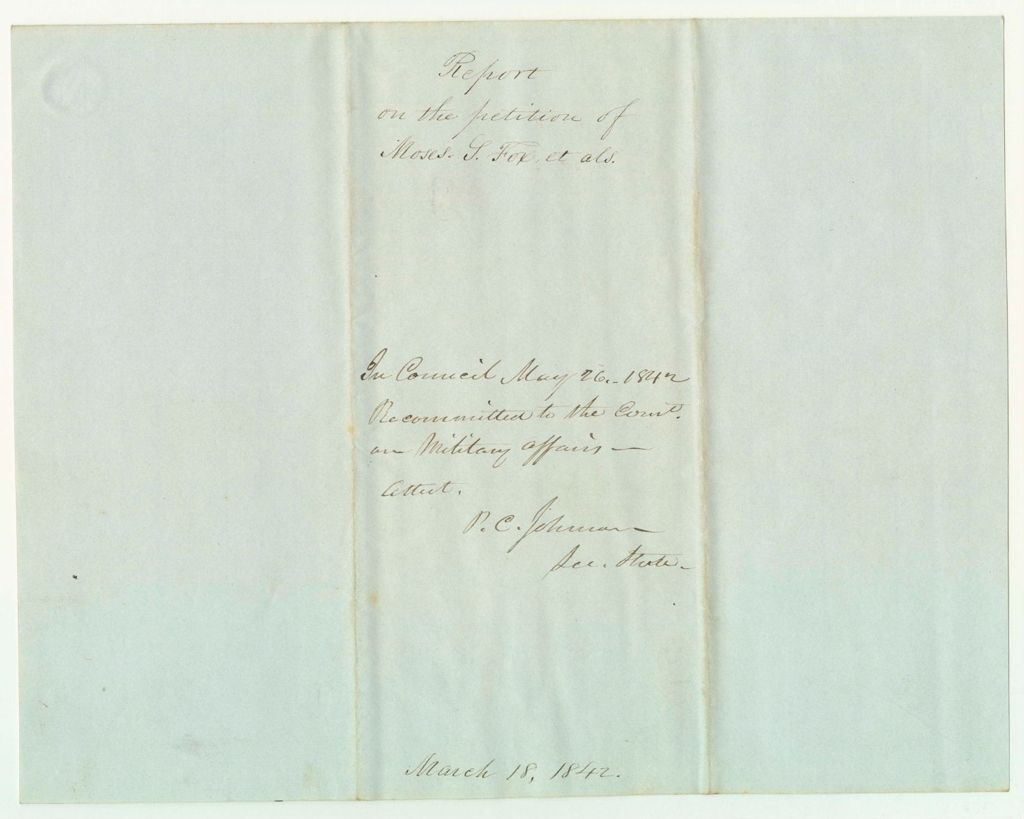 Report
on the petition of
Moses. S. Fox, et als.
In Council May 26. - 1842
Recommitted to the Comt.
on Military Affairs —
Attest.
P. C. Johnson
Sec. State -
March 18, 1842.